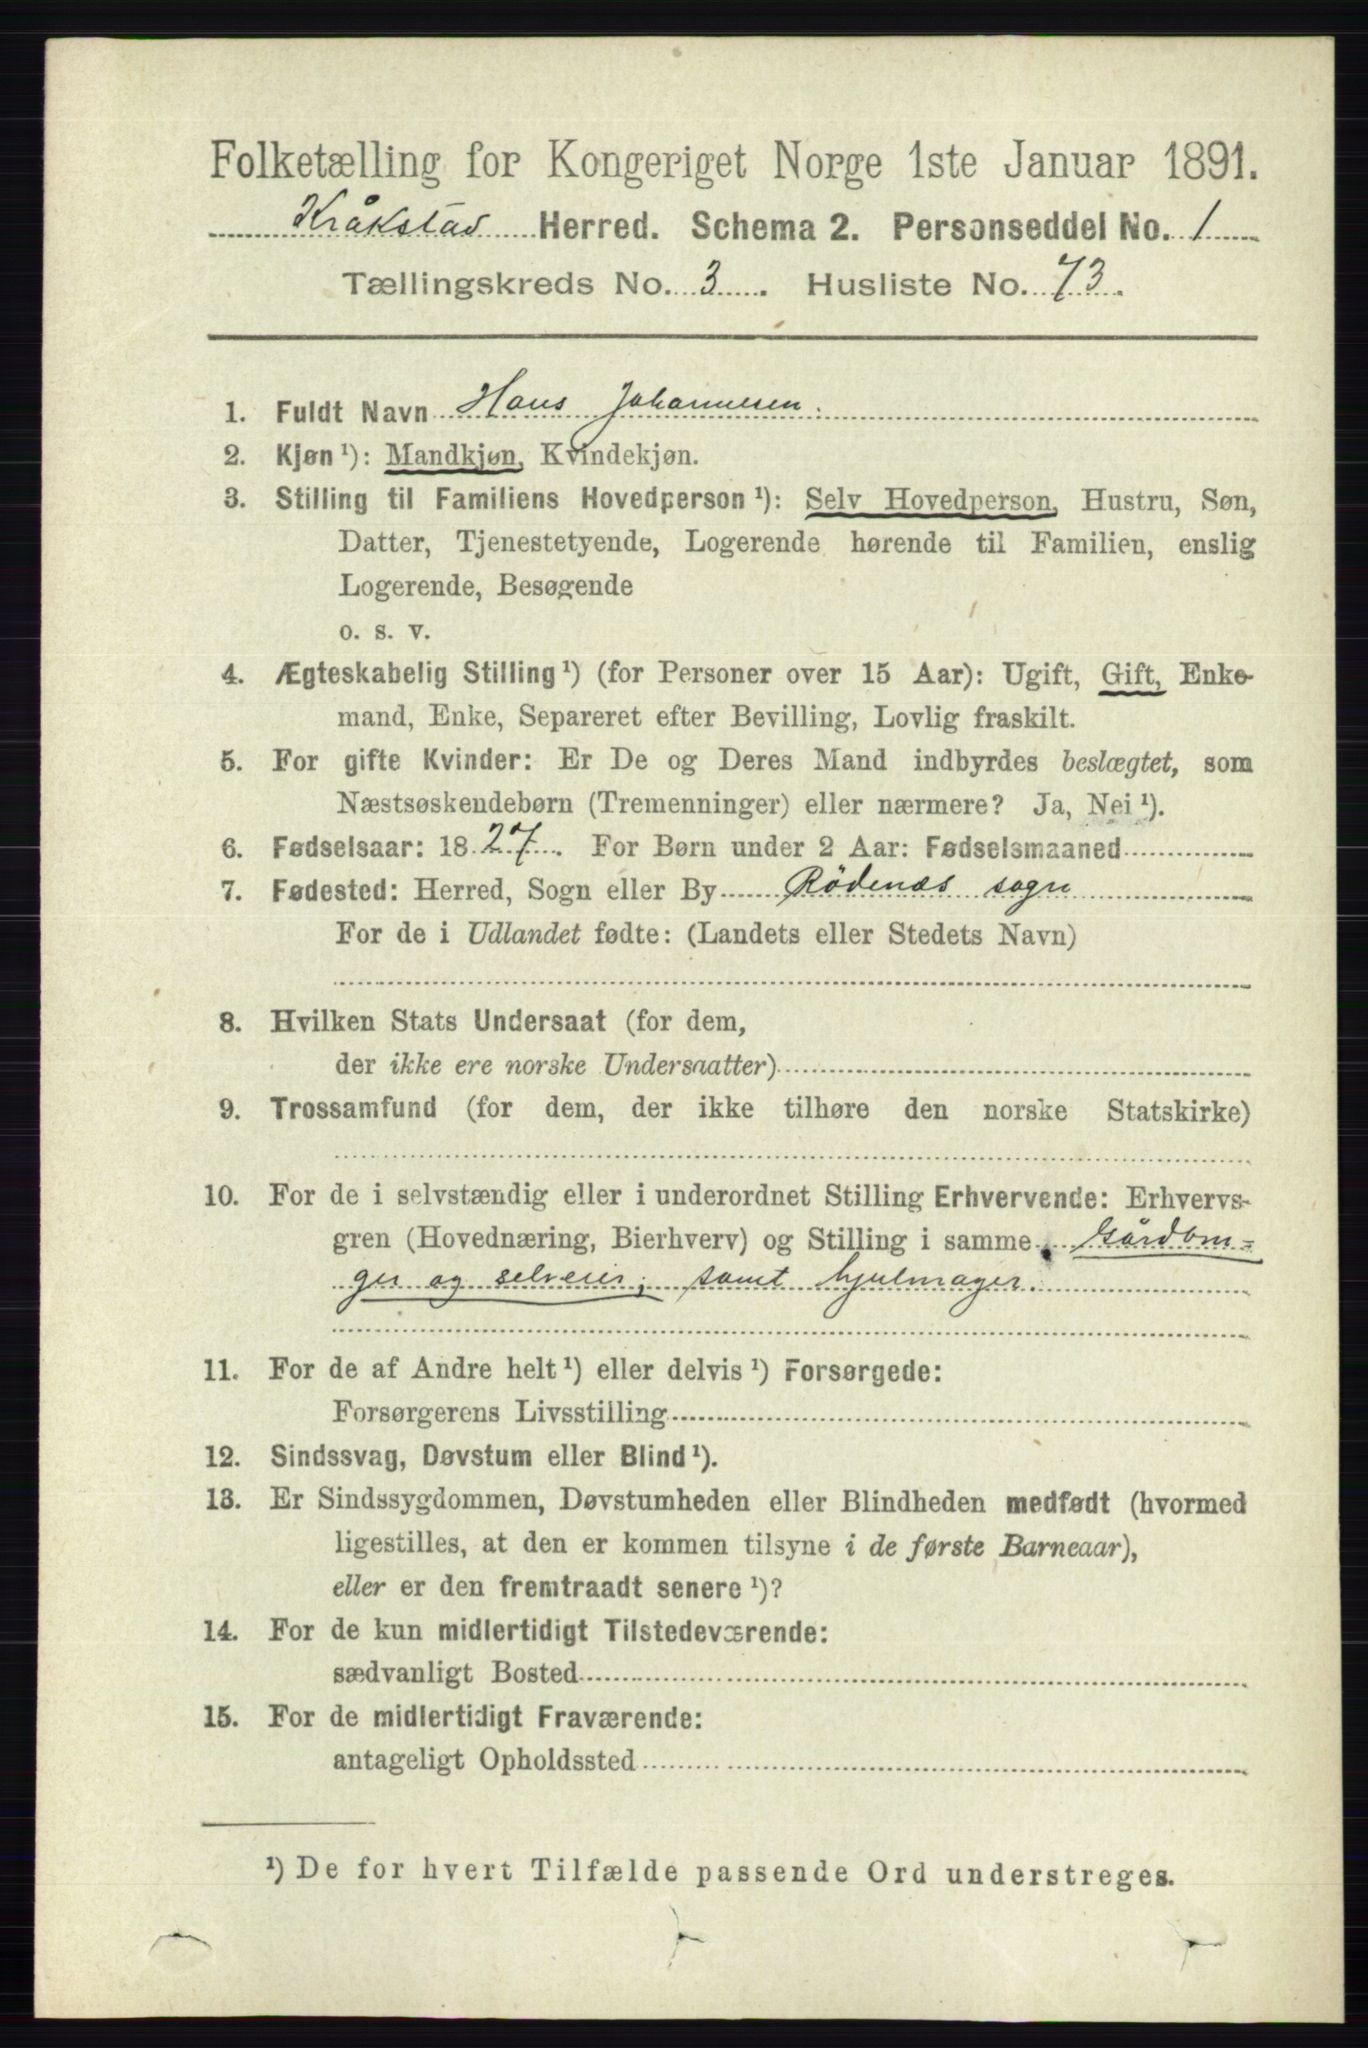 Folketælling for Kongeriget Norge 1ste Januar 1891.
Kråkstad Herred. Schema 2. Personseddel No. 1
Tællingskreds No. 3. Husliste No. 73.
1. Fuldt Navn Hans Johannesen.
2. Kjøn¹): Mandkjøn, Kvindekjøn.
3. Stilling til Familiens Hovedperson¹): Selv Hovedperson, Hustru, Søn,
Datter, Tjenestetyende, Logerende hørende til Familien, enslig
Logerende, Besøgende
o. s. v.
4. Ægteskabelig Stilling¹) (for Personer over 15 Aar): Ugift, Gift, Enke-
mand, Enke, Separeret efter Bevilling, Lovlig fraskilt.
5. For gifte Kvinder: Er De og Deres Mand indbyrdes beslægtet, som
Næstsøskendebørn (Tremenninger) eller nærmere? Ja, Nei¹).
6. Fødselsaar: 1827. For Børn under 2 Aar: Fødselsmaaned
7. Fødested: Herred, Sogn eller By Rödenæs sogn
For de i Udlandet fødte: (Landets eller Stedets Navn)
8. Hvilken Stats Undersaat (for dem,
der ikke ere norske Undersaatter)
9. Trossamfund (for dem, der ikke tilhøre den norske Statskirke)
10. For de i selvstændig eller i underordnet Stilling Erhvervende: Erhvervs-
gren (Hovednæring, Bierhverv) og Stilling i samme Gårdbru=
ger og selveier, samt hjulmager.
11. For de af Andre helt¹) eller delvis¹) Forsørgede:
Forsørgerens Livsstilling
12. Sindssvag, Døvstum eller Blind¹).
13. Er Sindssygdommen, Døvstumheden eller Blindheden medfødt (hvormed
ligestilles, at den er kommen tilsyne i de første Barneaar),
eller er den fremtraadt senere¹)?
14. For de kun midlertidigt Tilstedeværende:
sædvanligt Bosted
15. For de midlertidigt Fraværende:
antageligt Opholdssted
¹) De for hvert Tilfælde passende Ord understreges.